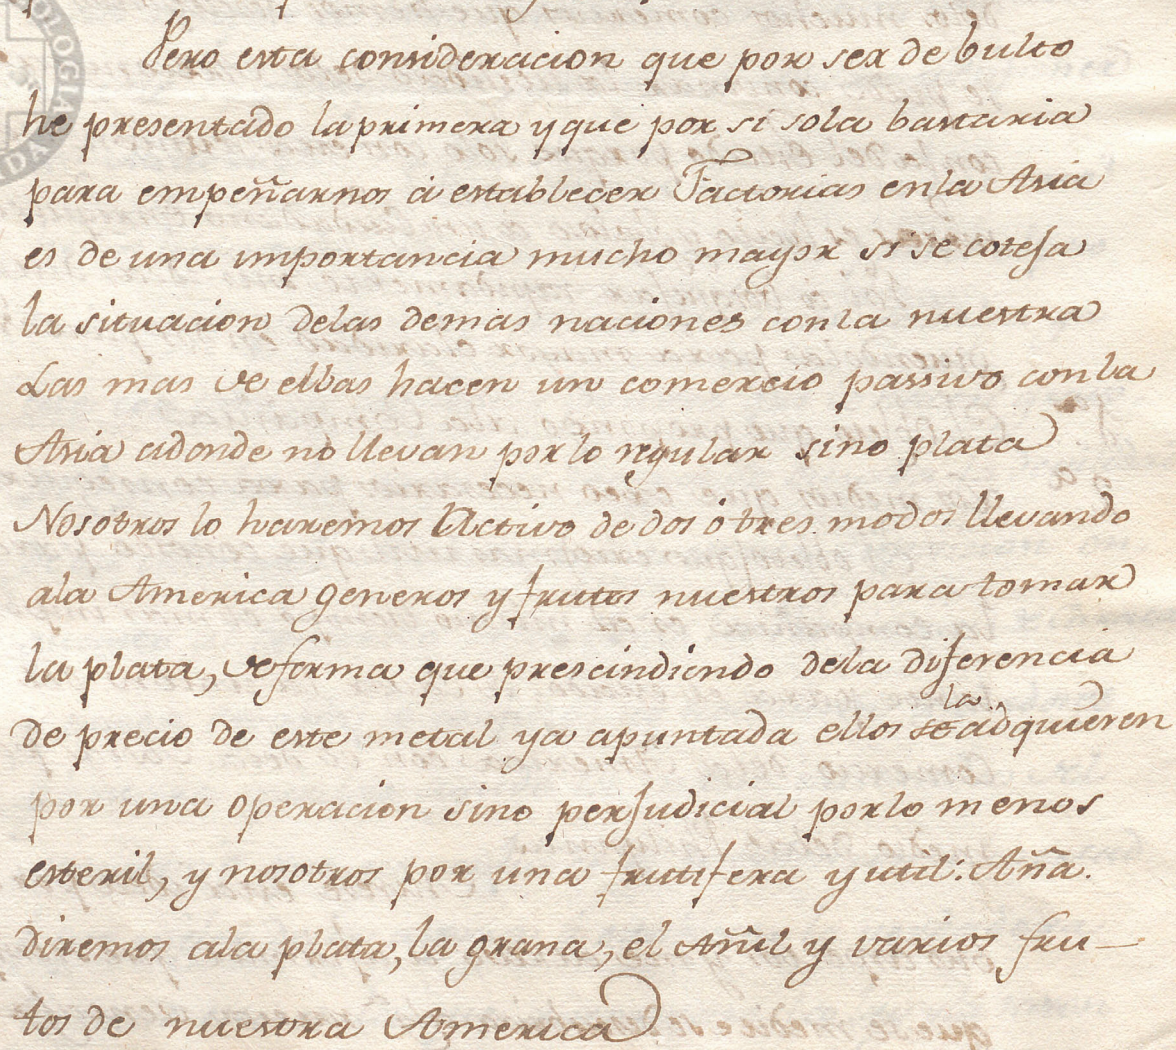 Pero esta consideracion que por ser de bulto
he presentado la primera y que por si sola bastaria
para empeñarnos á establecer Factorias en la Asia
es de una importancia mucho mayor si se coteja
la situacion delas demas naciones con la nuestra
Las mas de ellas hacen un comercio passivo con la
Asia adonde no llevan por lo regular sino plata
Nosotros lo haremos Activo de dos ó tres modos llevando
ala America generos y frutos nuestros para tomar
la plata, de forma que prescindiendo dela diferencia
de precio de este metal ya apuntada ellos la adquieren
por una operacion sino perjudicial por lo menos
esteril, y nosotros por una frutifera y util: Aña.
diremos ala plata, la grana, el Añil y varios fru-
tos de nuestra America